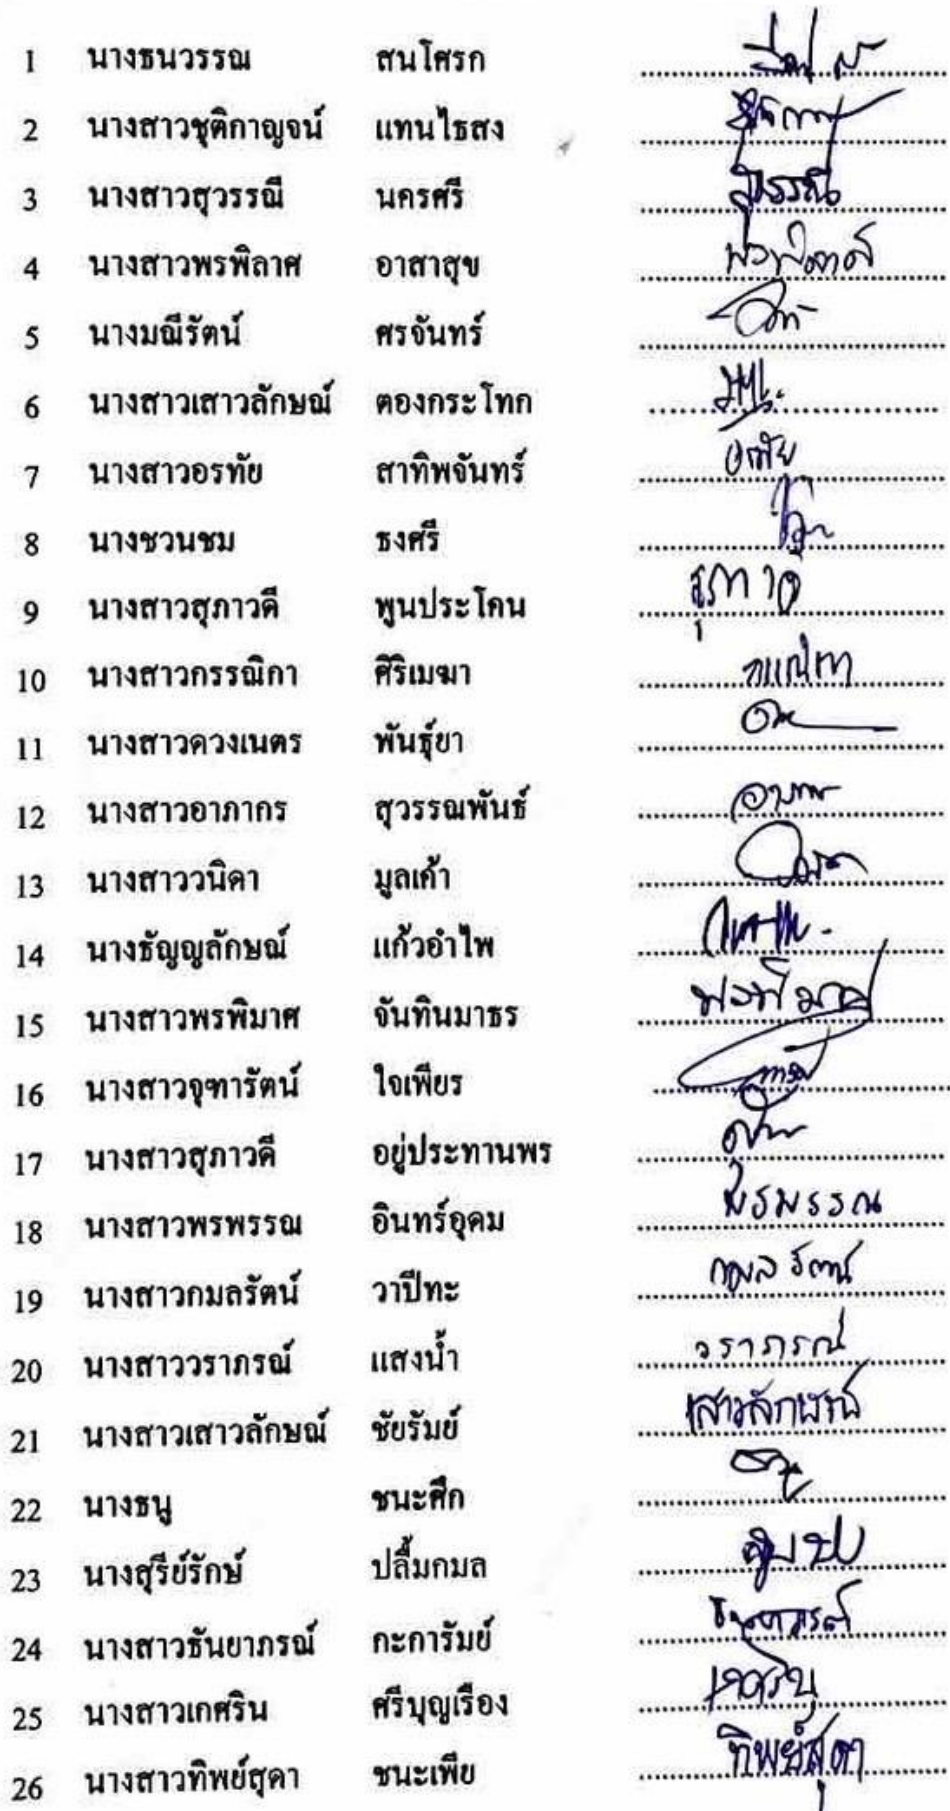 1 นางธนวรรณ สนโศรก
2 นางสาวชุติกาญจน์ แทนไธสง
3 นางสาวสุวรรณี นครศรี สุวรรณี
4 นางสาวพรพิลาศ อาสาสุข
5 นางมณีรัตน์ ศรจันทร์
6 นางสาวเสาวลักษณ์ ตองกระโทก
7 นางสาวอรทัย สาทิพจันทร์ อรทัย
8 นางชวนชม ธงศรี
9 นางสาวสุภาวดี พูนประโคน
10 นางสาวกรรณิกา ศิริเมฆา
11 นางสาวดวงเนตร พันธุ์ยา
12 นางสาวอาภากร สุวรรณพันธ์
13 นางสาววนิดา มูลเค้า
14 นางธัญญลักษณ์ แก้วอำไพ
15 นางสาวพรพิมาศ จันทินมาธร พรพิมาศ
16 นางสาวจุฑารัตน์ ใจเพียร
17 นางสาวสุภาวดี อยู่ประทานพร
18 นางสาวพรพรรณ อินทร์อุดม พรพรรณ
19 นางสาวกมลรัตน์ วาปีทะ กมลรัตน์
20 นางสาววราภรณ์ แสงน้ำ วราภรณ์
21 นางสาวเสาวลักษณ์ ชัยรัมย์ เสาวลักษณ์
22 นางธนู ชนะศึก
23 นางสุรีย์รักษ์ ปลื้มกมล
24 นางสาวธันยาภรณ์ กะการัมย์
25 นางสาวเกศริน ศรีบุญเรือง เกศริน
26 นางสาวทิพย์สุดา ชนะเพีย ทิพย์สุดา